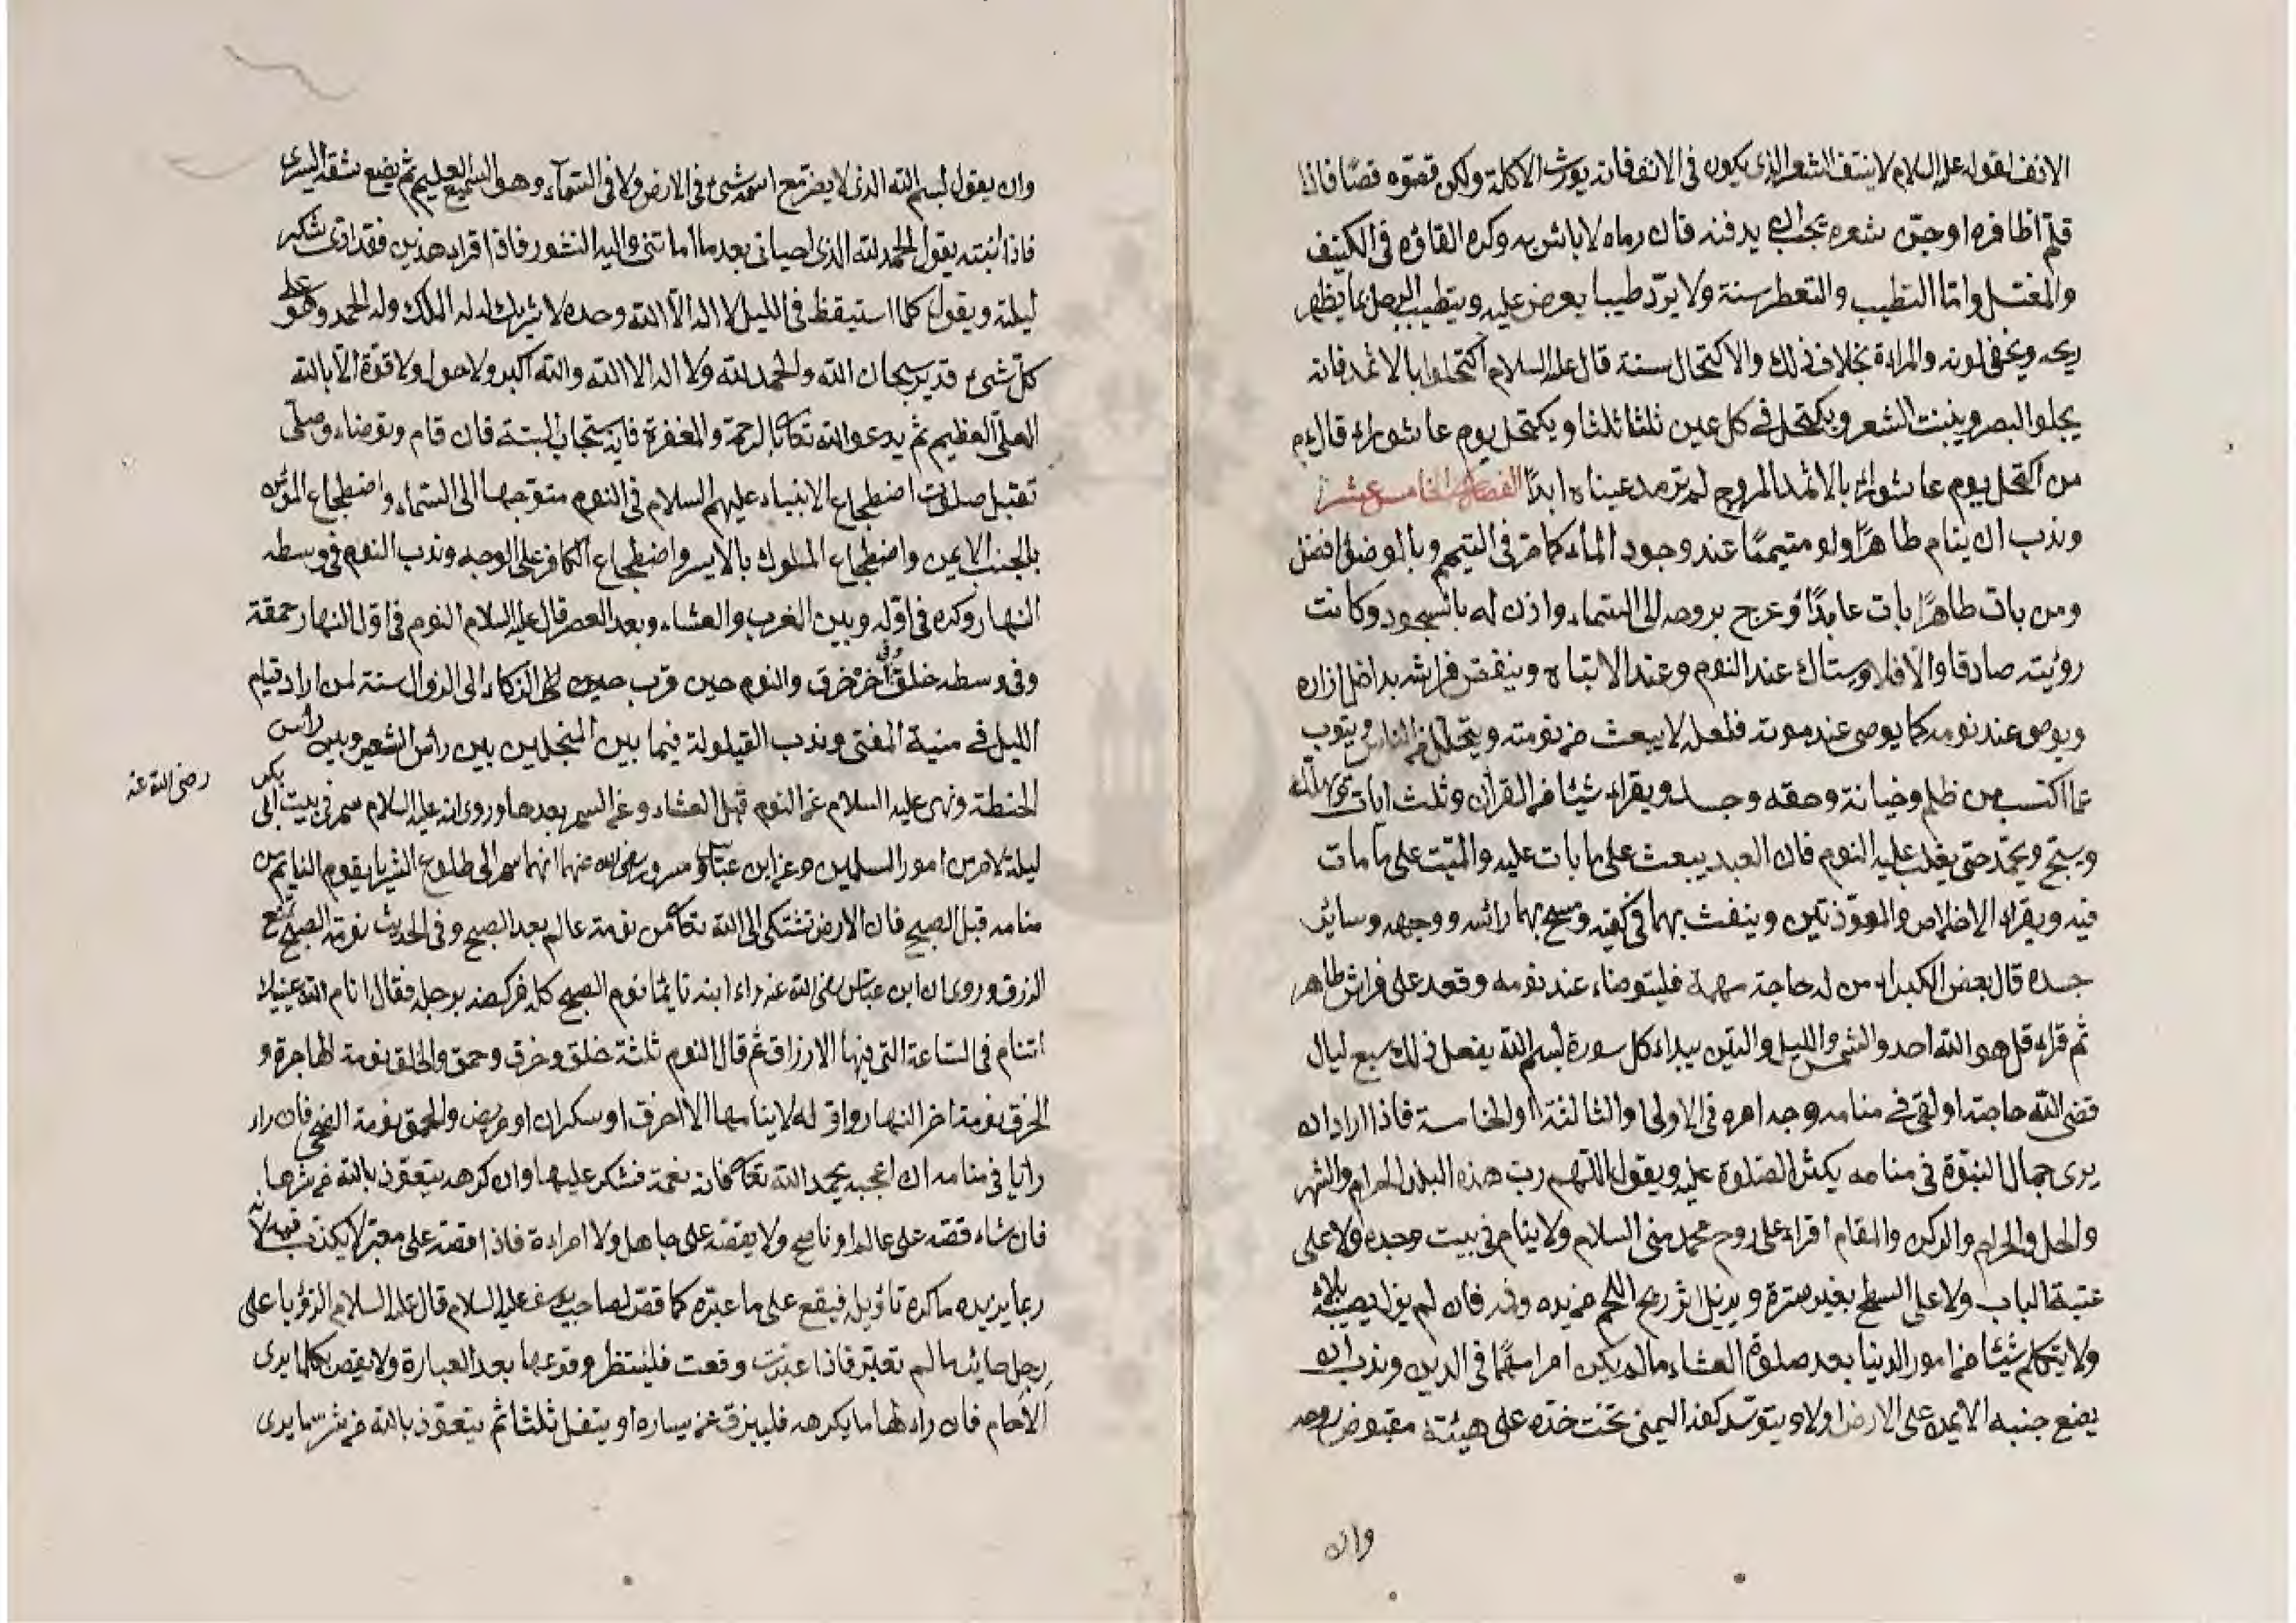 الانف لقوله عليه السلام لا ينتف الشعر الذى يكون فى الانف فانه يورث الاكلة ولكن قصّوه قصّا فاذا
قلم اظافره او جزّ شعره يجب ان يدفنه فان رماه لا باس به وكره القاؤه فى الكنيف
والمغتسل واما التطيب والتعطر سنة ولا يردّ طيبا يعرض عليه ويتطيب الرجل بما يظهر
ريحه ويخفى لونه والمراءة بخلاف ذلك والاكتحال سنة قال عليه السلام اكتحلوا بالاثمد فانه
يجلو البصر وينبت الشعر ويكتحل فى كل عين ثلثا ثلثا ويكتحل يوم عاشوراء قال م
من اكتحل يوم عاشوراء بالاثمد المروح لم ترمد عيناه ابدًا الفصل الخامس عشر
وندب ان ينام طاهرًا ولو متيممًا عند وجود الماء كما مرّ فى التيمم وبالوضوء افضل
ومن بات طاهرًا بات عابدًا وعرج بروحه الى السماء واذن له بالسجود وكانت
رؤيته صادقا والا فلا ويستاك عند النوم وعند الانتباه وينفض فراشه بداخل ازاره
ويوصى عند نومه كما يوصى عند موته فلعله لا يبعث من نومته ويتحلل من الناس ويتوب
مما اكتسب من ظلم وخيانة وحقه وحسد ويقراء شيئا من القران وثلث ايات
ويسبح ويحمّد حتى يغلب عليه النوم فان العبد يبعث على ما بات عليه والميّت على ما مات
فيه ويقراء الاخلاص والمعوّذتين وينفث بهما فى كفيه ومسح بهما رائسه ووجهه وسائر
جسده قال بعض الكبراء من له حاجة مهمة فليتوضاء عند نومه وقعد على فراش طاهر
ثم قراء قل هو الله احد والشمس والليل والتين يبداء كل سورة بسم الله يفعل ذلك سبع ليال
قضى الله حاجته او لقى فى منامه وجه امره فى الاولى او الثالثة او الخامسة فاذا اراد ان
يرى جمال النبوّة فى منامه يكثر الصلوة عليه ويقول اللهم رب هذه البلد الحرام والشهر
والحل والحرام والركن والمقام اقراء على روح محمد منى السلام ولا ينام فى بيت وحده ولا على
عتبة الباب ولا على السطح بغير سترة ويزيل اثر ريح اللحم من يده وفمه فان لم يزل يصيبه بلاء
ولا يتكلم شيئا من امور الدنيا بعد صلوة العشاء ما لم يكن امرا مهمًا فى الدين وندب ان
يضع جنبه الايمن على الارض اولا ويتوسّد كفه اليمنى تحت خدّه على هيئة مقبوض روحه
وان
وان يقول بسم الله الذى لا يضر مع اسمه شىء فى الارض ولا فى السمآء وهو السميع العليم ثم يضع شقه اليسرى
فاذا انبته يقول الحمد لله الذى احيانى بعد ما اماتنى واليه النشور فاذا اقراء هذين فقد ادّى شكر
ليلته ويقول كلما استيقظ فى الليل لا اله الا الله وحده لا شريك له له الملك وله الحمد وهو على
كل شىء قدير سبحان الله والحمد لله ولا اله الا الله والله اكبر ولا حول ولا قوّة الا بالله
العلىّ العظيم ثم يدعو الله تعالى بالرحمة والمغفرة فانه يستجاب البتة فان قام وتوضاء وصلّى
تقبل صلوته اضطجاع الانبياء عليهم السلام فى النوم متوجها الى السماء واضطجاع المؤمن
بالجنب الايمن واضطجاع الملوك بالايسر واضطجاع الكافر على الوجه وندب النوم فى وسطه
النهار وكره فى اوّله وبين المغرب والعشاء وبعد العصر قال عليه السلام النوم فى اوّل النهار حمقة
وفى وسطه خلق وفى اخره خرق والنوم حين قرب الى الزوال سنة لمن اراد قيام
الليل فى منية المفتى وندب القيلولة فيما بين المنجلين بين رأس الشعير وبين راس
الحنطة ونهى عليه السلام عن النوم قبل العشاء وعن السمر بعدها وروى انه عليه السلام سمر فى بيت ابى بكر
رضى الله عنه
ليلة لامر من امور المسلمين وعن ابن عباس ومسور رضى الله عنهما انهما سهر الى طلوع الثريا يقوم النايم من
منامه قبل الصبح فان الارض تشتكى الى الله تعالى من نومة عالم بعد الصبح وفى الحديث نومة الصبح تمنع
الرزق وروى ان ابن عباس رضى الله عنه راء ابنه نائما نوم الصبح كله فركضه برجله فقال انام الله عينيك
اتنام فى الساعة التى فيها الارزاق ثم قال النوم ثلثة خلق وخرق وحمق والخلق نومة الهاجرة و
الخرق نومة اخر النهار واوّله لا ينامها الا احرق او سكران او مريض والحمق نومة الضحى فان راء
رايا فى منامه ان اعجبه يحمد الله تعالى فانه نعمة فشكر عليها وان كرهه يتعوّذ بالله من شرها
فان شاء قصّه على عالم او ناصح ولا يقصّه على جاهل ولا امراءة فاذا قصّه على معبّر لا يكذب فيه لانه
ربما يزيده ما كره تاؤيله فيقع على ما عبّره كما قصّ لصاحب يوسف عليه السلام قال عليه السلام الرؤيا على
رجل طائر ما لم تعبّر فاذا عبّرت وقعت فلينتظر وقوعها بعد العبارة ولا يقص كلما يرى
الاحلام فان راء لها ما يكرهه فليبزق عن يساره او يتفل ثلثا ثم يتعوّذ بالله من شر ما يرى